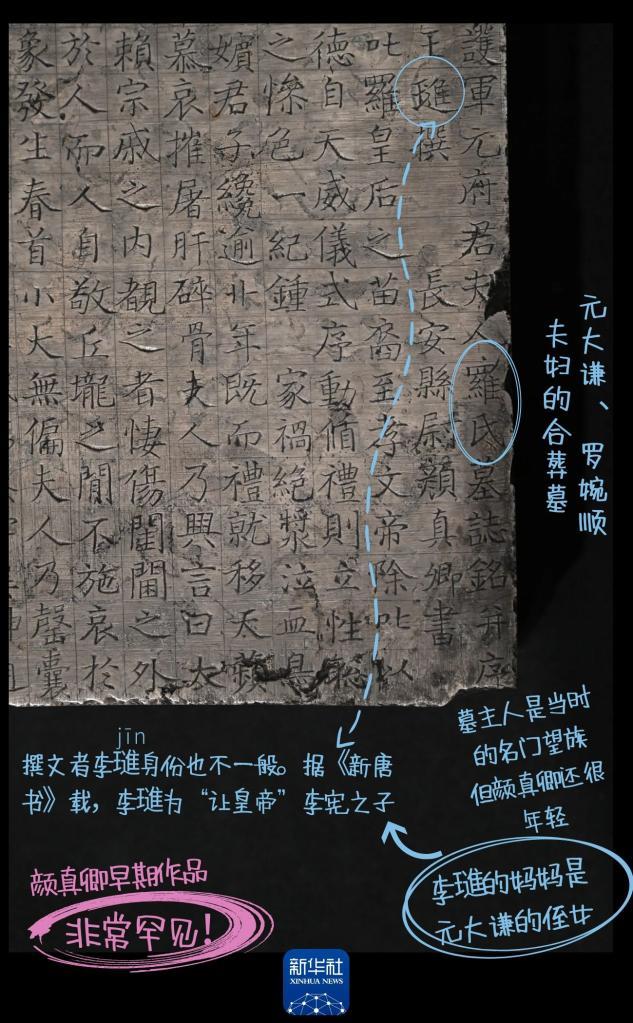 護軍元府君夫人羅氏墓誌銘并序
王璡撰 長安縣尉顏真卿書
叱羅皇后之苗裔至孝文帝除叱以
德自天威儀式序動循禮則立性聰
之慘色一紀鍾 家禍絕漿泣血
嬪君子纔逾卝年既而禮就移天蘋
慕哀摧屠肝碎骨夫人乃興言曰大
賴宗戚之內覩之者悽傷閨閫之外
於人而人自敬丘壠之閒不施哀於
象發生春首小大無偏夫人乃罄囊
元大谦、罗婉顺
夫妇的合葬墓
jīn
撰文者李璡身份也不一般。据《新唐
书》载，李璡为“让皇帝”李宪之子
墓主人是当时
的名门望族
但颜真卿还很
年轻
李璡的妈妈是
元大谦的侄女
颜真卿早期作品
非常罕见！
新华社
XINHUA NEWS